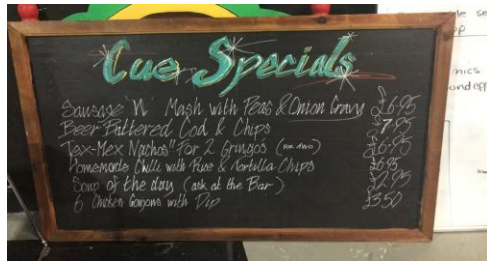 Cue Specials
Sausage 'N' Mash with Peas & Onion Gravy £6.95
Beer Battered Cod & Chips 7.95
Tex-Mex Nachos "For 2 Gringos (FOR TWO) £6.95
Homemade Chilli with Rice & Tortilla Chips £6.95
Soup of the day (ask at the Bar) £2.95
6 Chicken Goujons with Dip £3.50